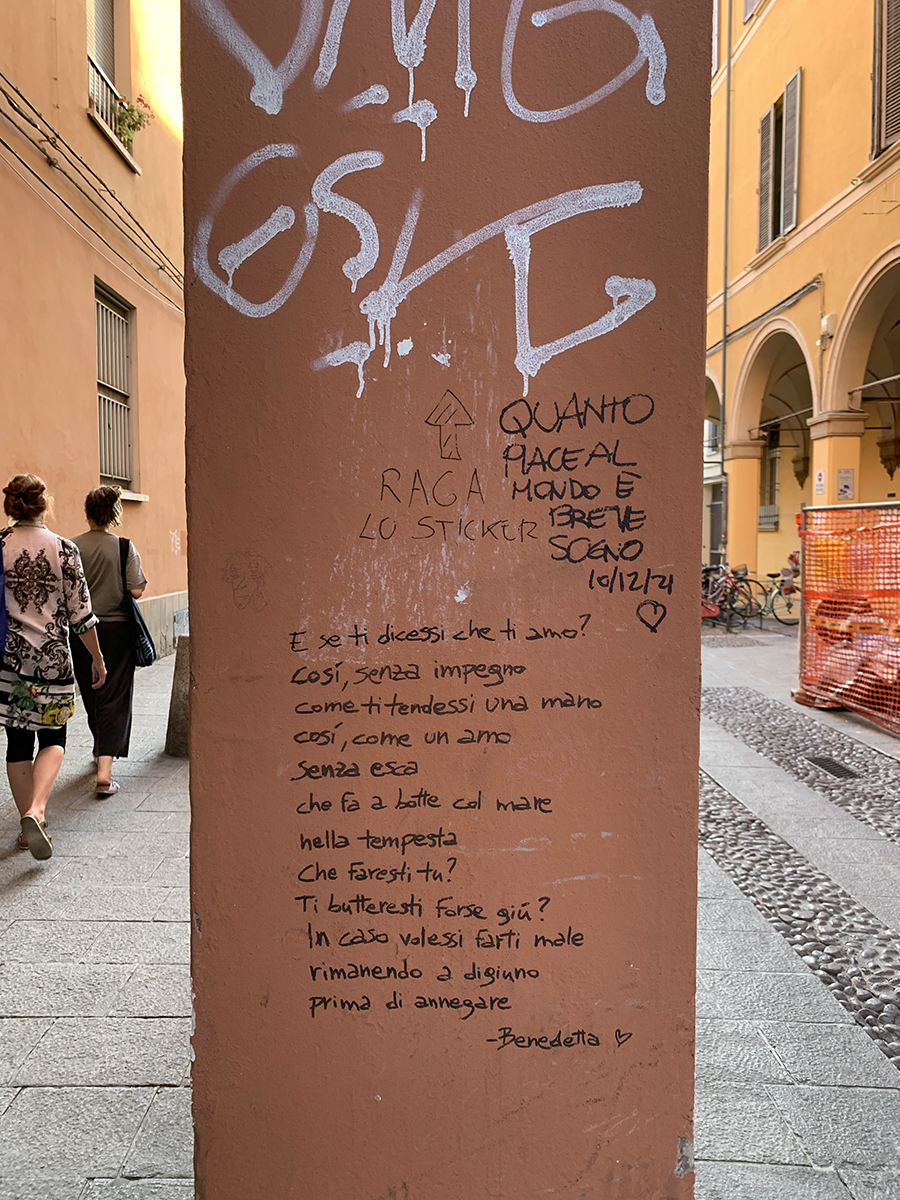 QUANTO
PIACE AL
MONDO È
BREVE
SOGNO
10/12/21
RAGA
LO STICKER
E se ti dicessi che ti amo?
Cosí, senza impegno
come ti tendessi una mano
cosí, come un amo
senza esca
che fa a botte col mare
nella tempesta
Che faresti tu?
Ti butteresti forse giú?
In caso volessi farti male
rimanendo a digiuno
prima di annegare
-Benedetta